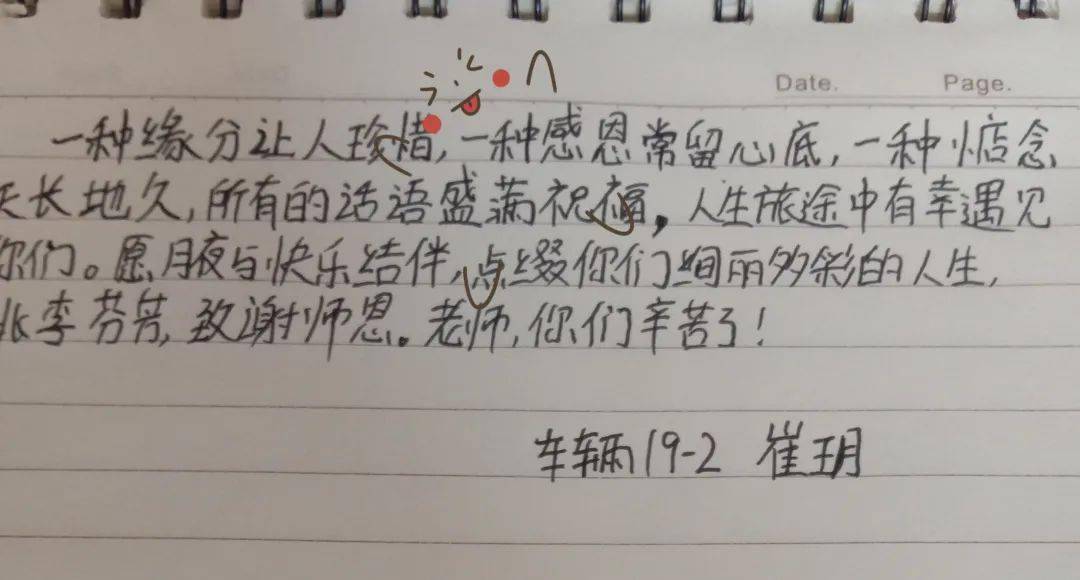 Date. Page.
一种缘分让人珍惜,一种感恩常留心底,一种惦念
天长地久,所有的话语盛满祝福,人生旅途中有幸遇见
你们。愿月夜与快乐结伴,点缀你们绚丽多彩的人生,
李芬芳,致谢师恩。老师,你们辛苦了!
车辆19-2 崔玥